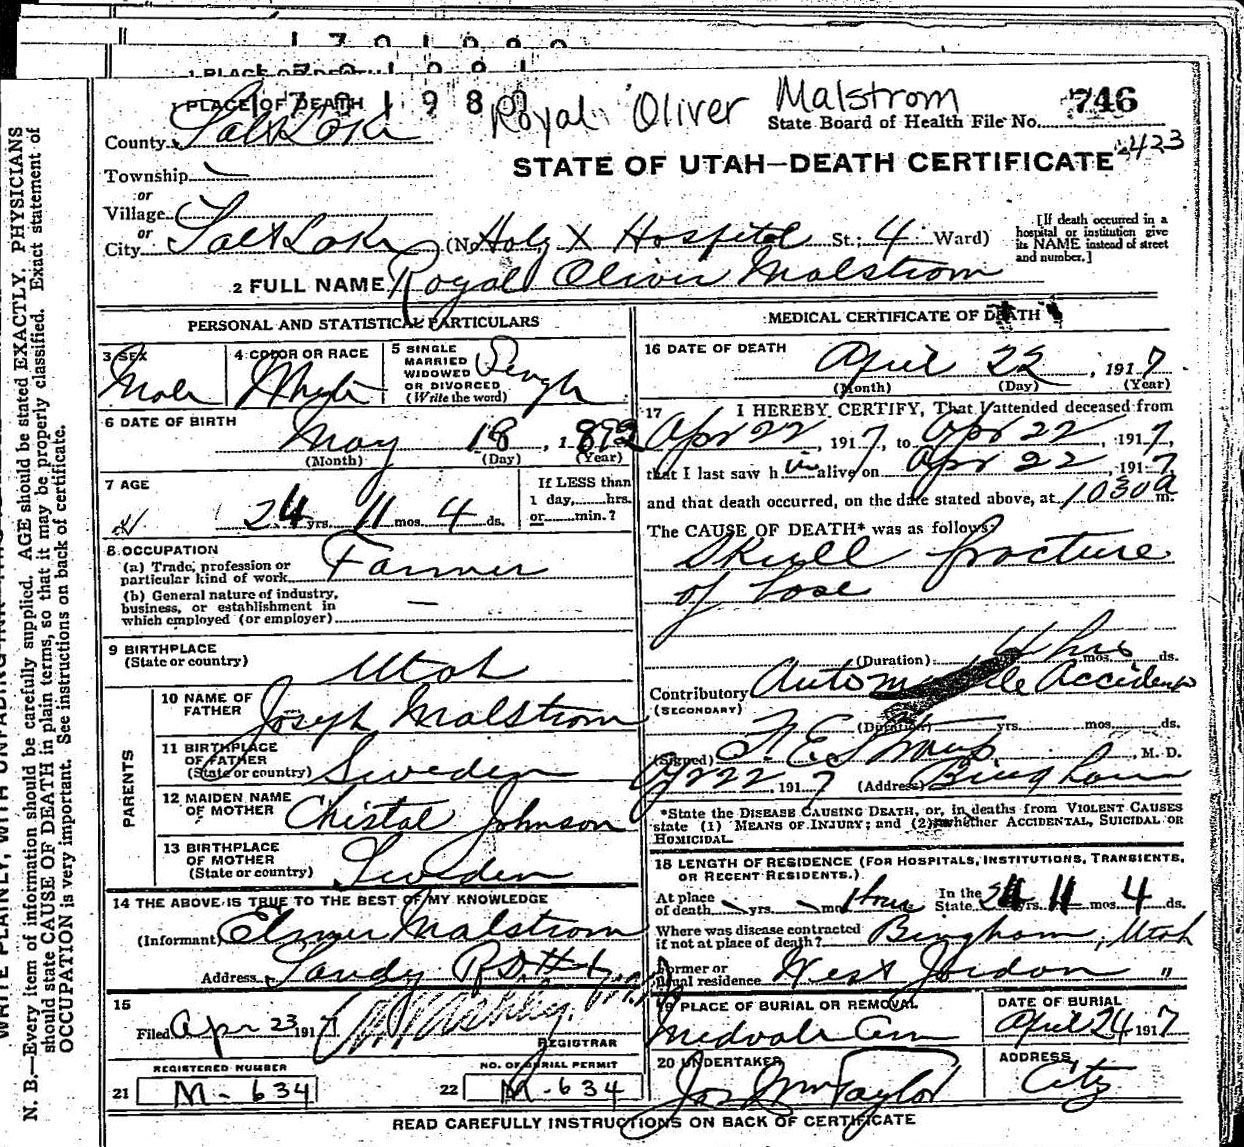 1701980
1 PLACE OF DEATH
1701981
1 PLACE OF DEATH
170198
Royal Oliver Malstrom
State Board of Health File No. 746
County Salt Lake
423
STATE OF UTAH—DEATH CERTIFICATE
Township
or
Village
or
City Salt Lake (No. Holy X Hospital St.; 4 Ward)
[If death occurred in a hospital or institution give its NAME instead of street and number.]
2 FULL NAME Royal Oliver Malstrom
PERSONAL AND STATISTICAL PARTICULARS
3 SEX Male
4 COLOR OR RACE White
5 SINGLE MARRIED WIDOWED OR DIVORCED (Write the word) Single
6 DATE OF BIRTH May 18, 1892
(Month) (Day) (Year)
7 AGE 24 yrs. 11 mos. 4 ds.
If LESS than 1 day, hrs. or min.?
8 OCCUPATION
(a) Trade, profession or particular kind of work Farmer
(b) General nature of industry, business, or establishment in which employed (or employer) —
9 BIRTHPLACE (State or country) Utah
PARENTS
10 NAME OF FATHER Joseph Malstrom
11 BIRTHPLACE OF FATHER (State or country) Sweden
12 MAIDEN NAME OF MOTHER Christal Johnson
13 BIRTHPLACE OF MOTHER (State or country) Sweden
14 THE ABOVE IS TRUE TO THE BEST OF MY KNOWLEDGE
(Informant) Elmer Malstrom
Address Sandy
15
Filed Apr 23 1917
REGISTRAR
REGISTERED NUMBER
21 M-634
NO. OF BURIAL PERMIT
22 M-634
MEDICAL CERTIFICATE OF DEATH
16 DATE OF DEATH April 22, 1917
(Month) (Day) (Year)
17 I HEREBY CERTIFY, That I attended deceased from
Apr 22, 1917, to Apr 22, 1917,
that I last saw him alive on Apr 22, 1917,
and that death occurred, on the date stated above, at 1030 a m.
The CAUSE OF DEATH* was as follows:
Skull fracture
of base
(Duration) 4 hrs mos. ds.
Contributory Automobile Accident
(SECONDARY)
(Duration) yrs. mos. ds.
(Signed) F. E. Straup M. D.
Apr 22 1917 (Address) Bingham
*State the DISEASE CAUSING DEATH, or, in deaths from VIOLENT CAUSES state (1) MEANS OF INJURY; and (2) whether ACCIDENTAL, SUICIDAL OR HOMICIDAL.
18 LENGTH OF RESIDENCE (FOR HOSPITALS, INSTITUTIONS, TRANSIENTS, OR RECENT RESIDENTS.)
At place of death yrs. mos. 1 hour In the State 24 yrs. 11 mos. 4 ds.
Where was disease contracted if not at place of death? Bingham, Utah
Former or usual residence West Jordan "
19 PLACE OF BURIAL OR REMOVAL Midvale Cem
DATE OF BURIAL April 24 1917
20 UNDERTAKER Jos Wm Taylor
ADDRESS City
READ CAREFULLY INSTRUCTIONS ON BACK OF CERTIFICATE
N. B.—Every item of information should be carefully supplied. AGE should be stated EXACTLY. PHYSICIANS
should state CAUSE OF DEATH in plain terms, so that it may be properly classified. Exact statement of
OCCUPATION is very important. See instructions on back of certificate.